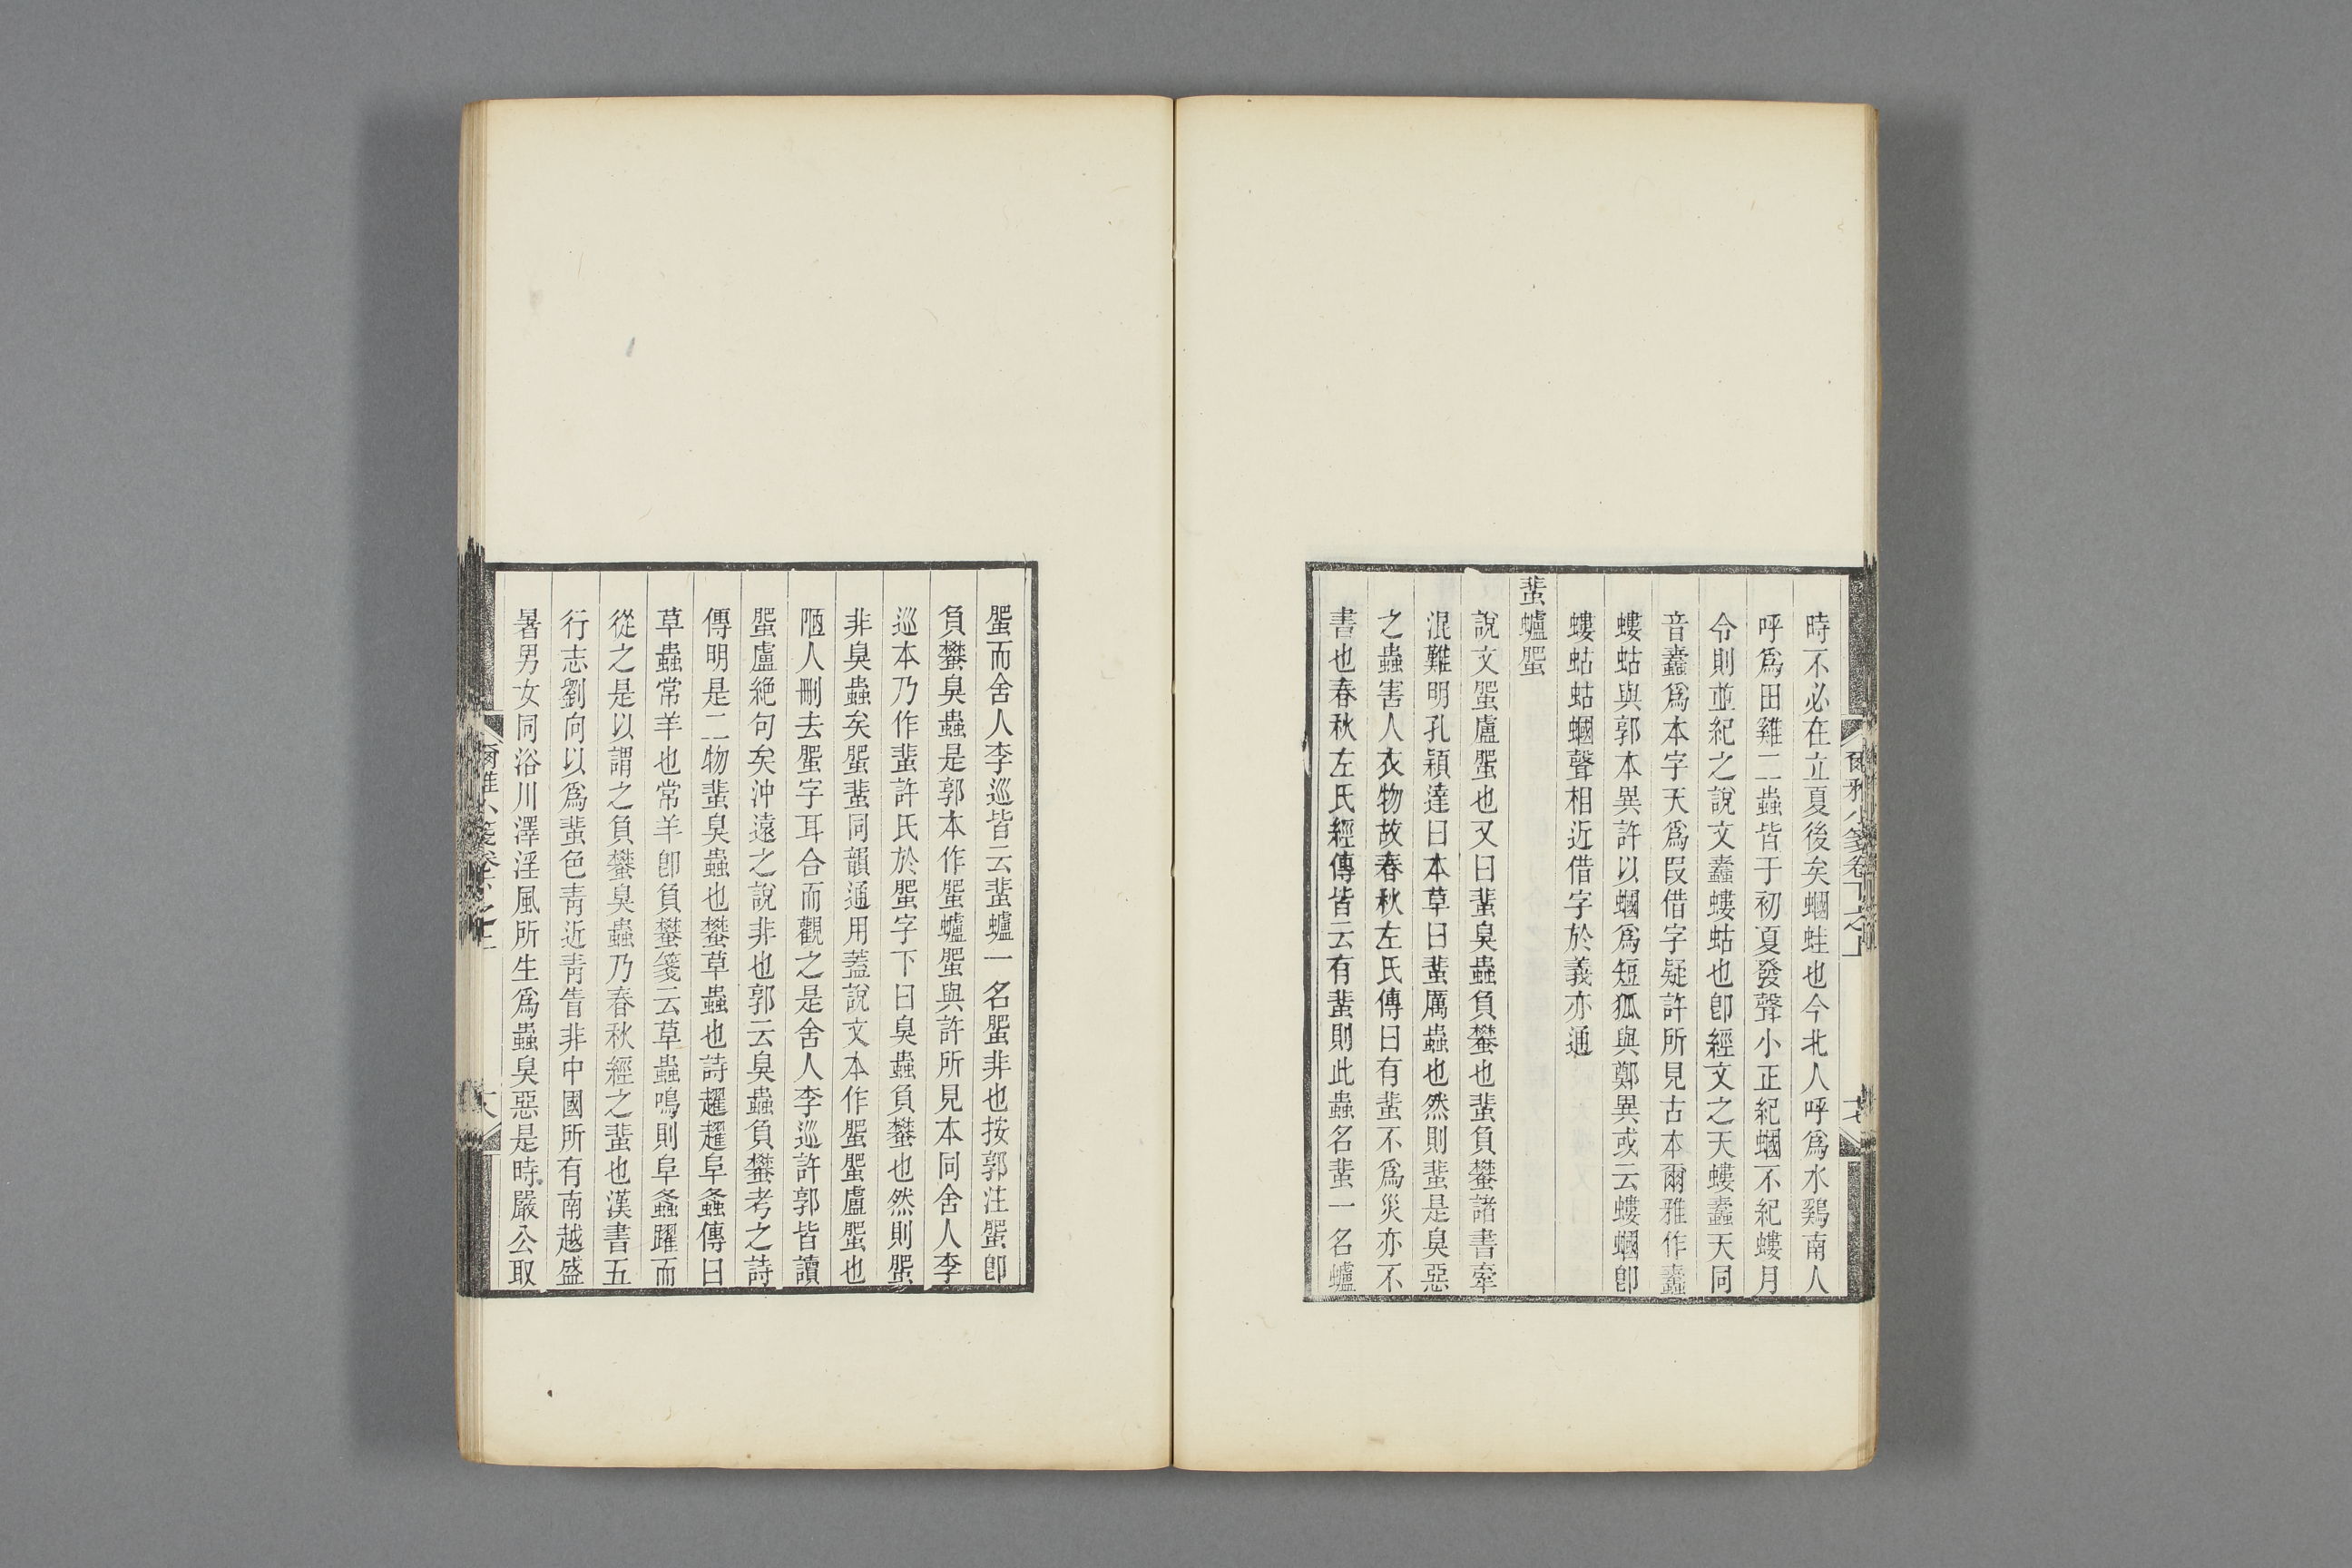 時不必在立夏後矣蟈蛙也今北人呼爲水鷄南人
呼爲田雞二蟲皆于初夏發聲小正紀蟈不紀螻月
令則並紀之說文蠹螻蛄也卽經文之天螻蠹天同
音蠹爲本字天爲叚借字疑許所見古本爾雅作蠹
螻蛄與郭本異許以蟈爲短狐與鄭異或云螻蟈卽
螻蛄蛄蟈聲相近借字於義亦通
蜚蠦蜰
說文蜰盧蜰也又曰蜚臭蟲負蠜也蜚負蠜諸書牽
混難明孔穎達曰本草曰蜚厲蟲也然則蜚是臭惡
之蟲害人衣物故春秋左氏傳曰有蜚不爲災亦不
書也春秋左氏經傳皆云有蜚則此蟲名蜚一名蠦
蜰而舍人李巡皆云蜚蠦一名蜰非也按郭注蜰卽
負蠜臭蟲是郭本作蜰蠦蜰與許所見本同舍人李
巡本乃作蜚許氏於蜰字下曰臭蟲負蠜也然則蜰
非臭蟲矣蜰蜚同韻通用蓋說文本作蜰蜰盧蜰也
陋人刪去蜰字耳合而觀之是舍人李巡許郭皆讀
蜰盧絶句矣沖遠之說非也郭云臭蟲負蠜考之詩
傳明是二物蜚臭蟲也蠜草蟲也詩趯趯阜螽傳曰
草蟲常羊也常羊卽負蠜箋云草蟲鳴則阜螽躍而
從之是以謂之負蠜臭蟲乃春秋經之蜚也漢書五
行志劉向以爲蜚色靑近靑眚非中國所有南越盛
暑男女同浴川澤淫風所生爲蟲臭惡是時嚴公取
爾雅小箋卷下之上
十七